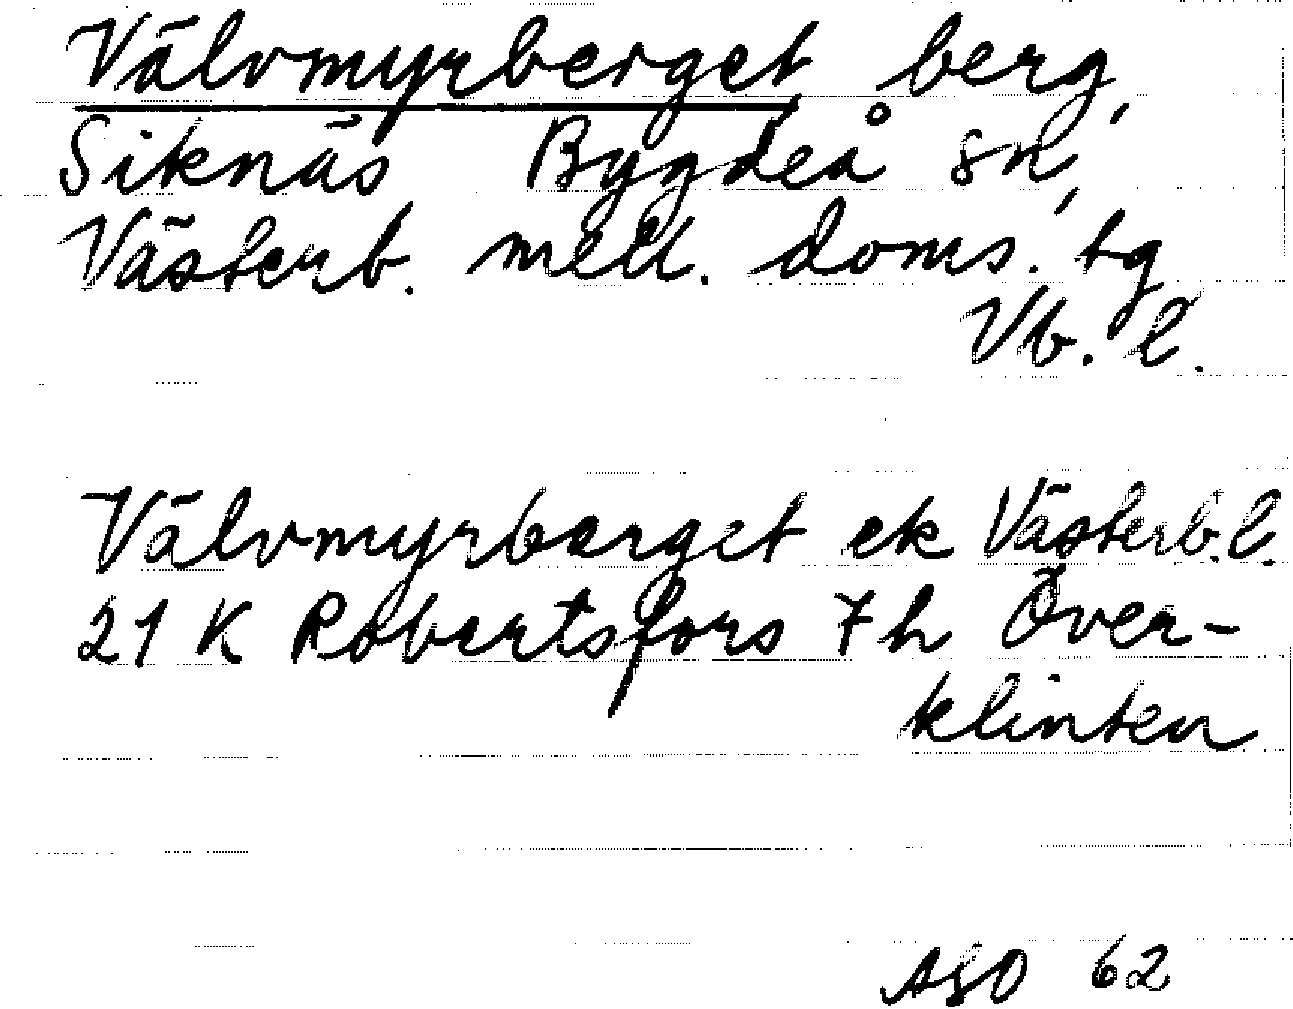 Välvmyrberget berg,
Siknäs Bygdeå sn,
Västerb. mell. doms. tg
Vb. l.
Välvmyrberget ek Västerb.l.
21 K Robertsfors 7h Över-
klinten
ASO 62